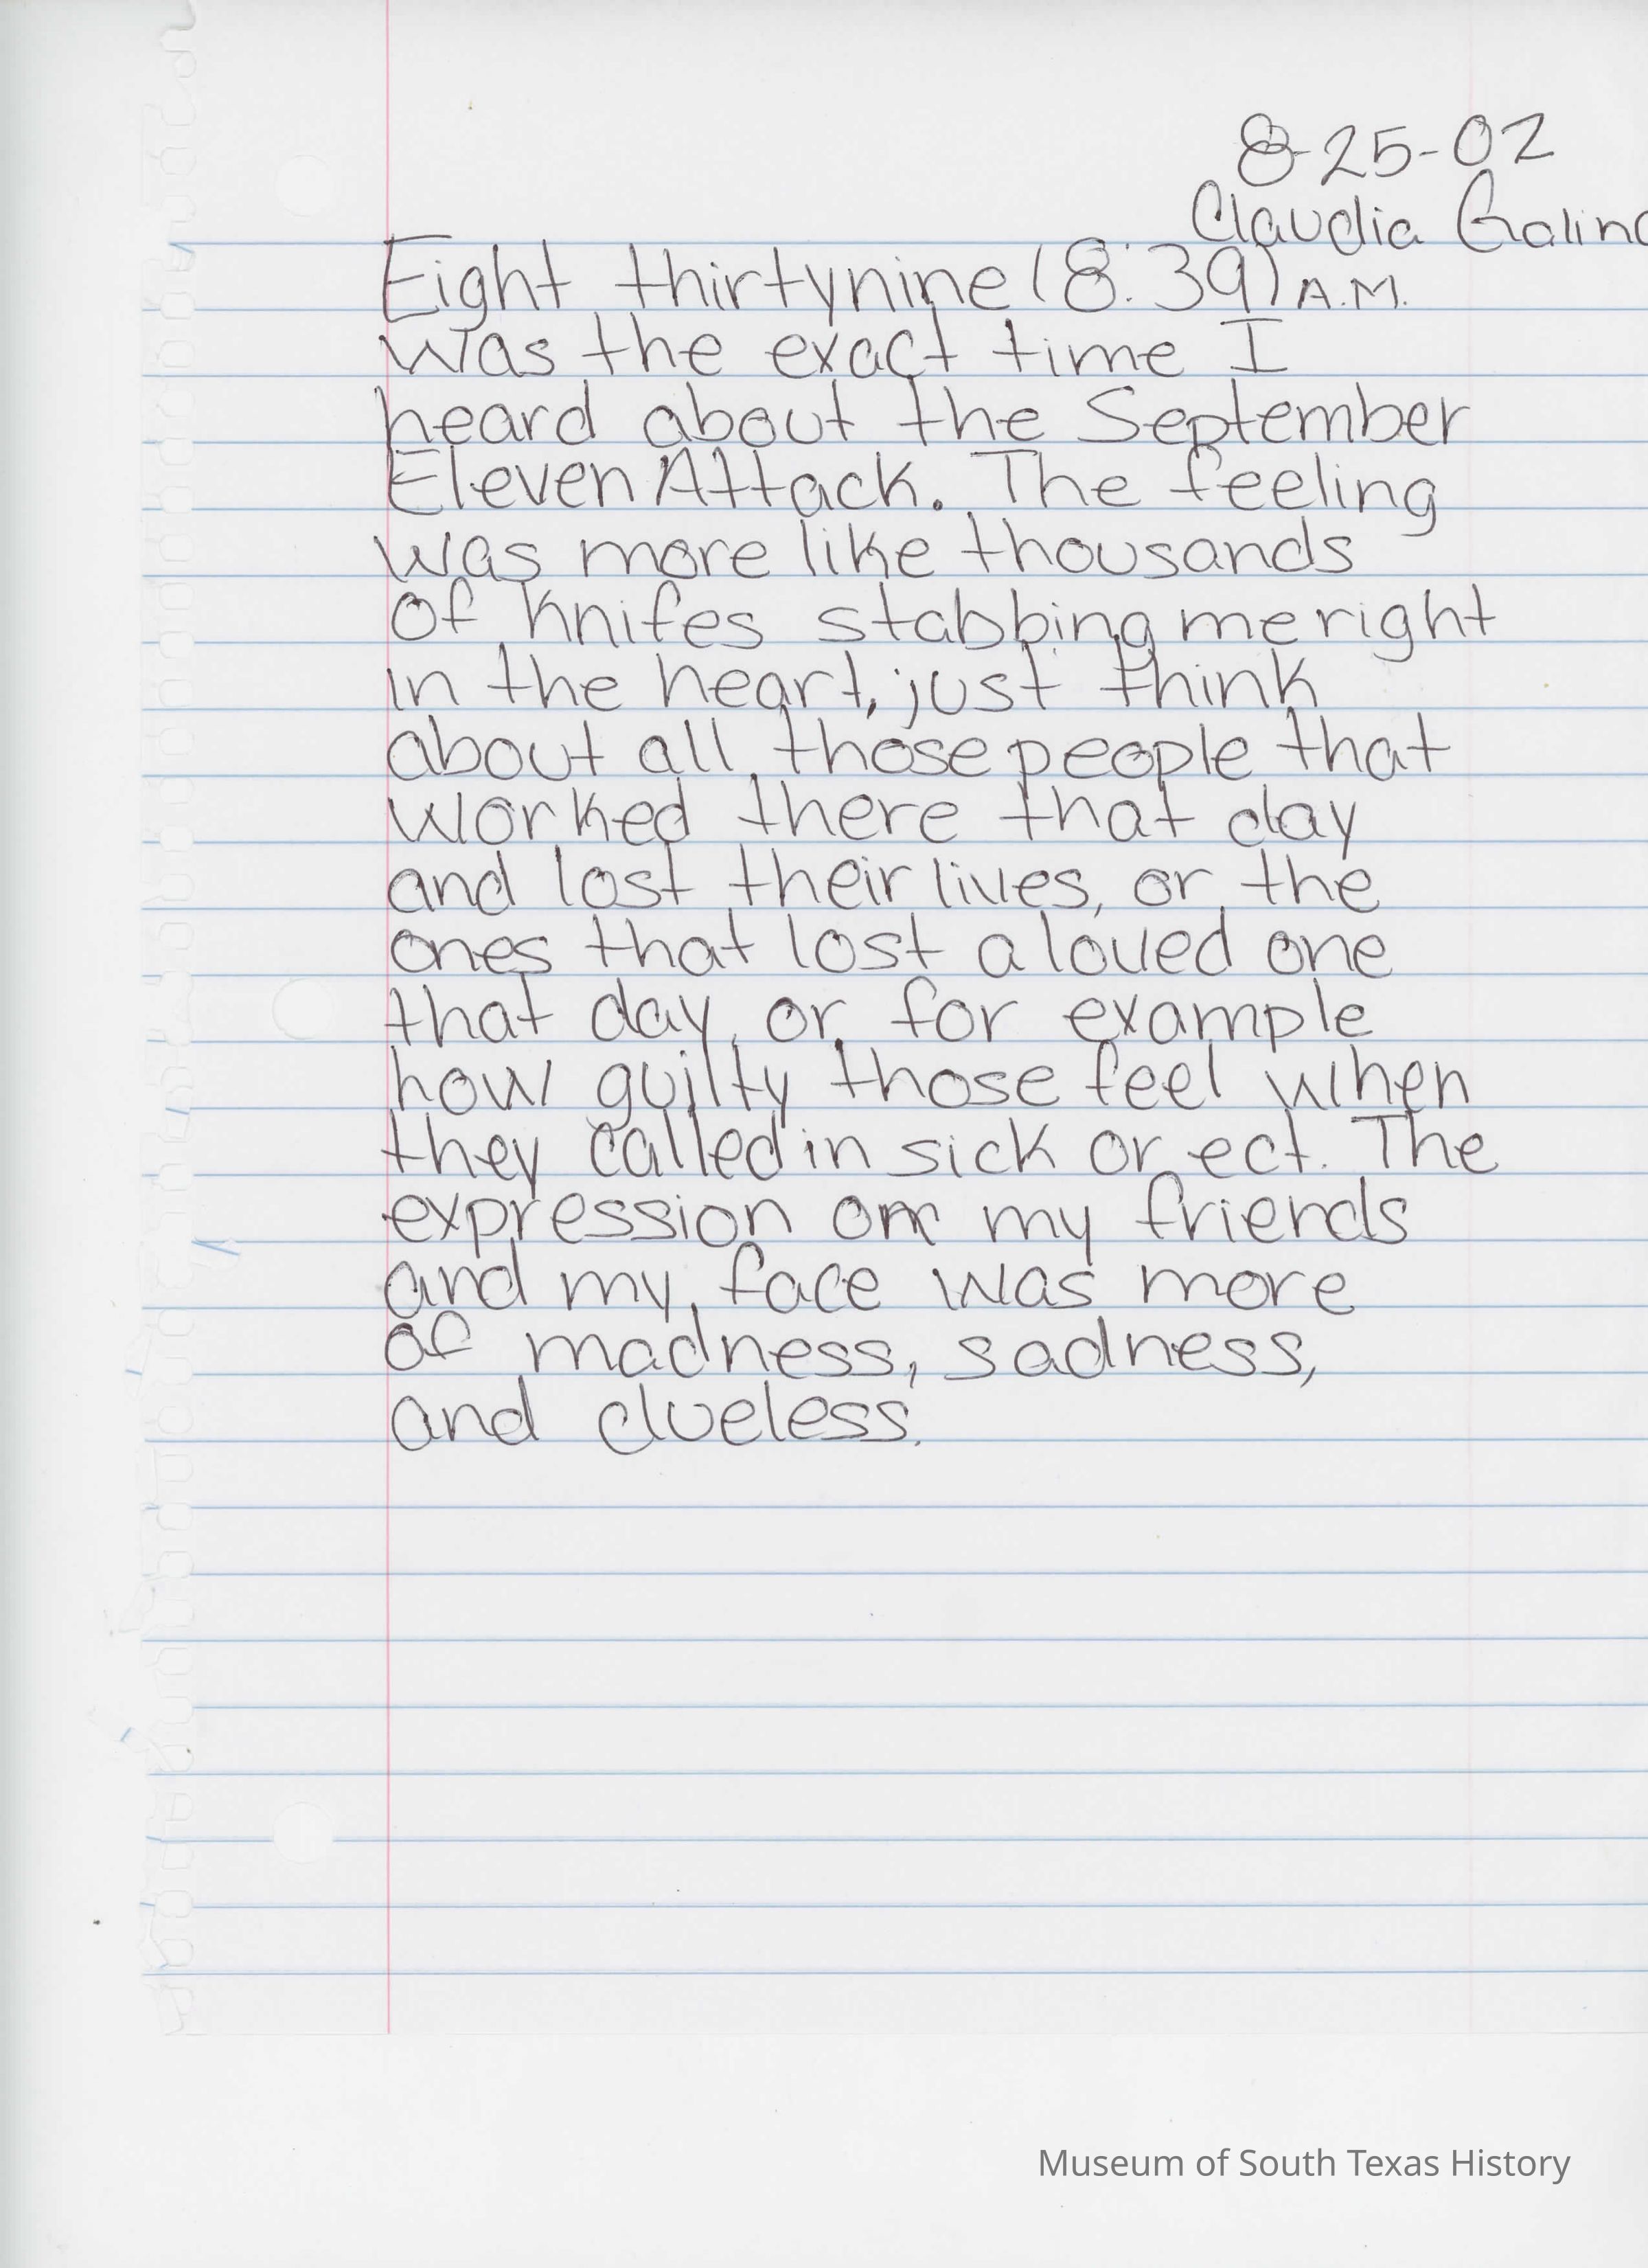 8-25-02
Claudia Galin
Eight thirtynine (8:39) A.M.
was the exact time I
heard about the September
Eleven Attack. The feeling
was more like thousands
of knifes stabbing me right
in the heart, just think
about all those people that
worked there that day
and lost their lives, or the
ones that lost a loved one
that day, or for example
how guilty those feel when
they called in sick or ect. The
expression on my friends
and my face was more
of madness, sadness,
and clueless.
Museum of South Texas History